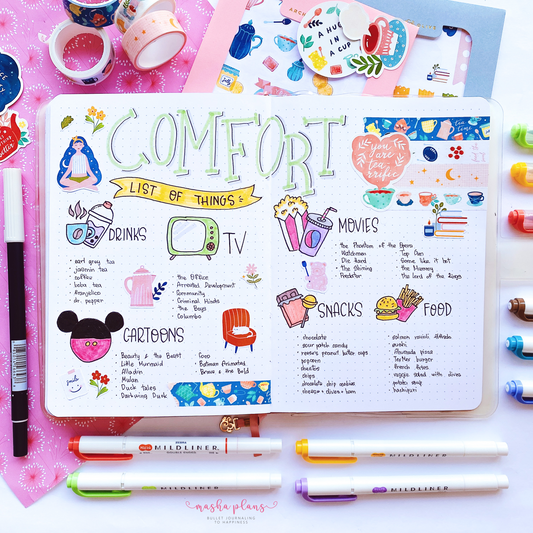 A HUG
IN A
CUP
COMFORT
LIST OF THINGS
you
are
tea
rrific
DRINKS
earl grey tea
jasmin tea
coffee
boba tea
franjelico
dr. pepper
TV
the Office
Arrested Development
Community
Criminal Minds
the Boys
Columbo
MOVIES
the Phantom of the Opera
Watchmen
Die Hard
The Shining
Predator
Top Gun
Some like it hot
the Mummy
the Lord of the Rings
CARTOONS
Beauty & the Beast
Little Mermaid
Alladin
Mulan
Duck tales
Darkwing Duck
Coco
Batman Animated
Brave & the Bold
smile
SNACKS
chocolate
sour patch candy
reese's peanut butter cups
popcorn
cheetos
chips
chocolate chip cookies
cheese + olives + ham
FOOD
sushi
pizza
burger
french fries
veggie salad with olives
potato soup
hachipuri
ZEBRA
MILDLINER
MILDLINER
MILDLINER
MILDLINER
masha plans
BULLET JOURNALING
TO HAPPINESS